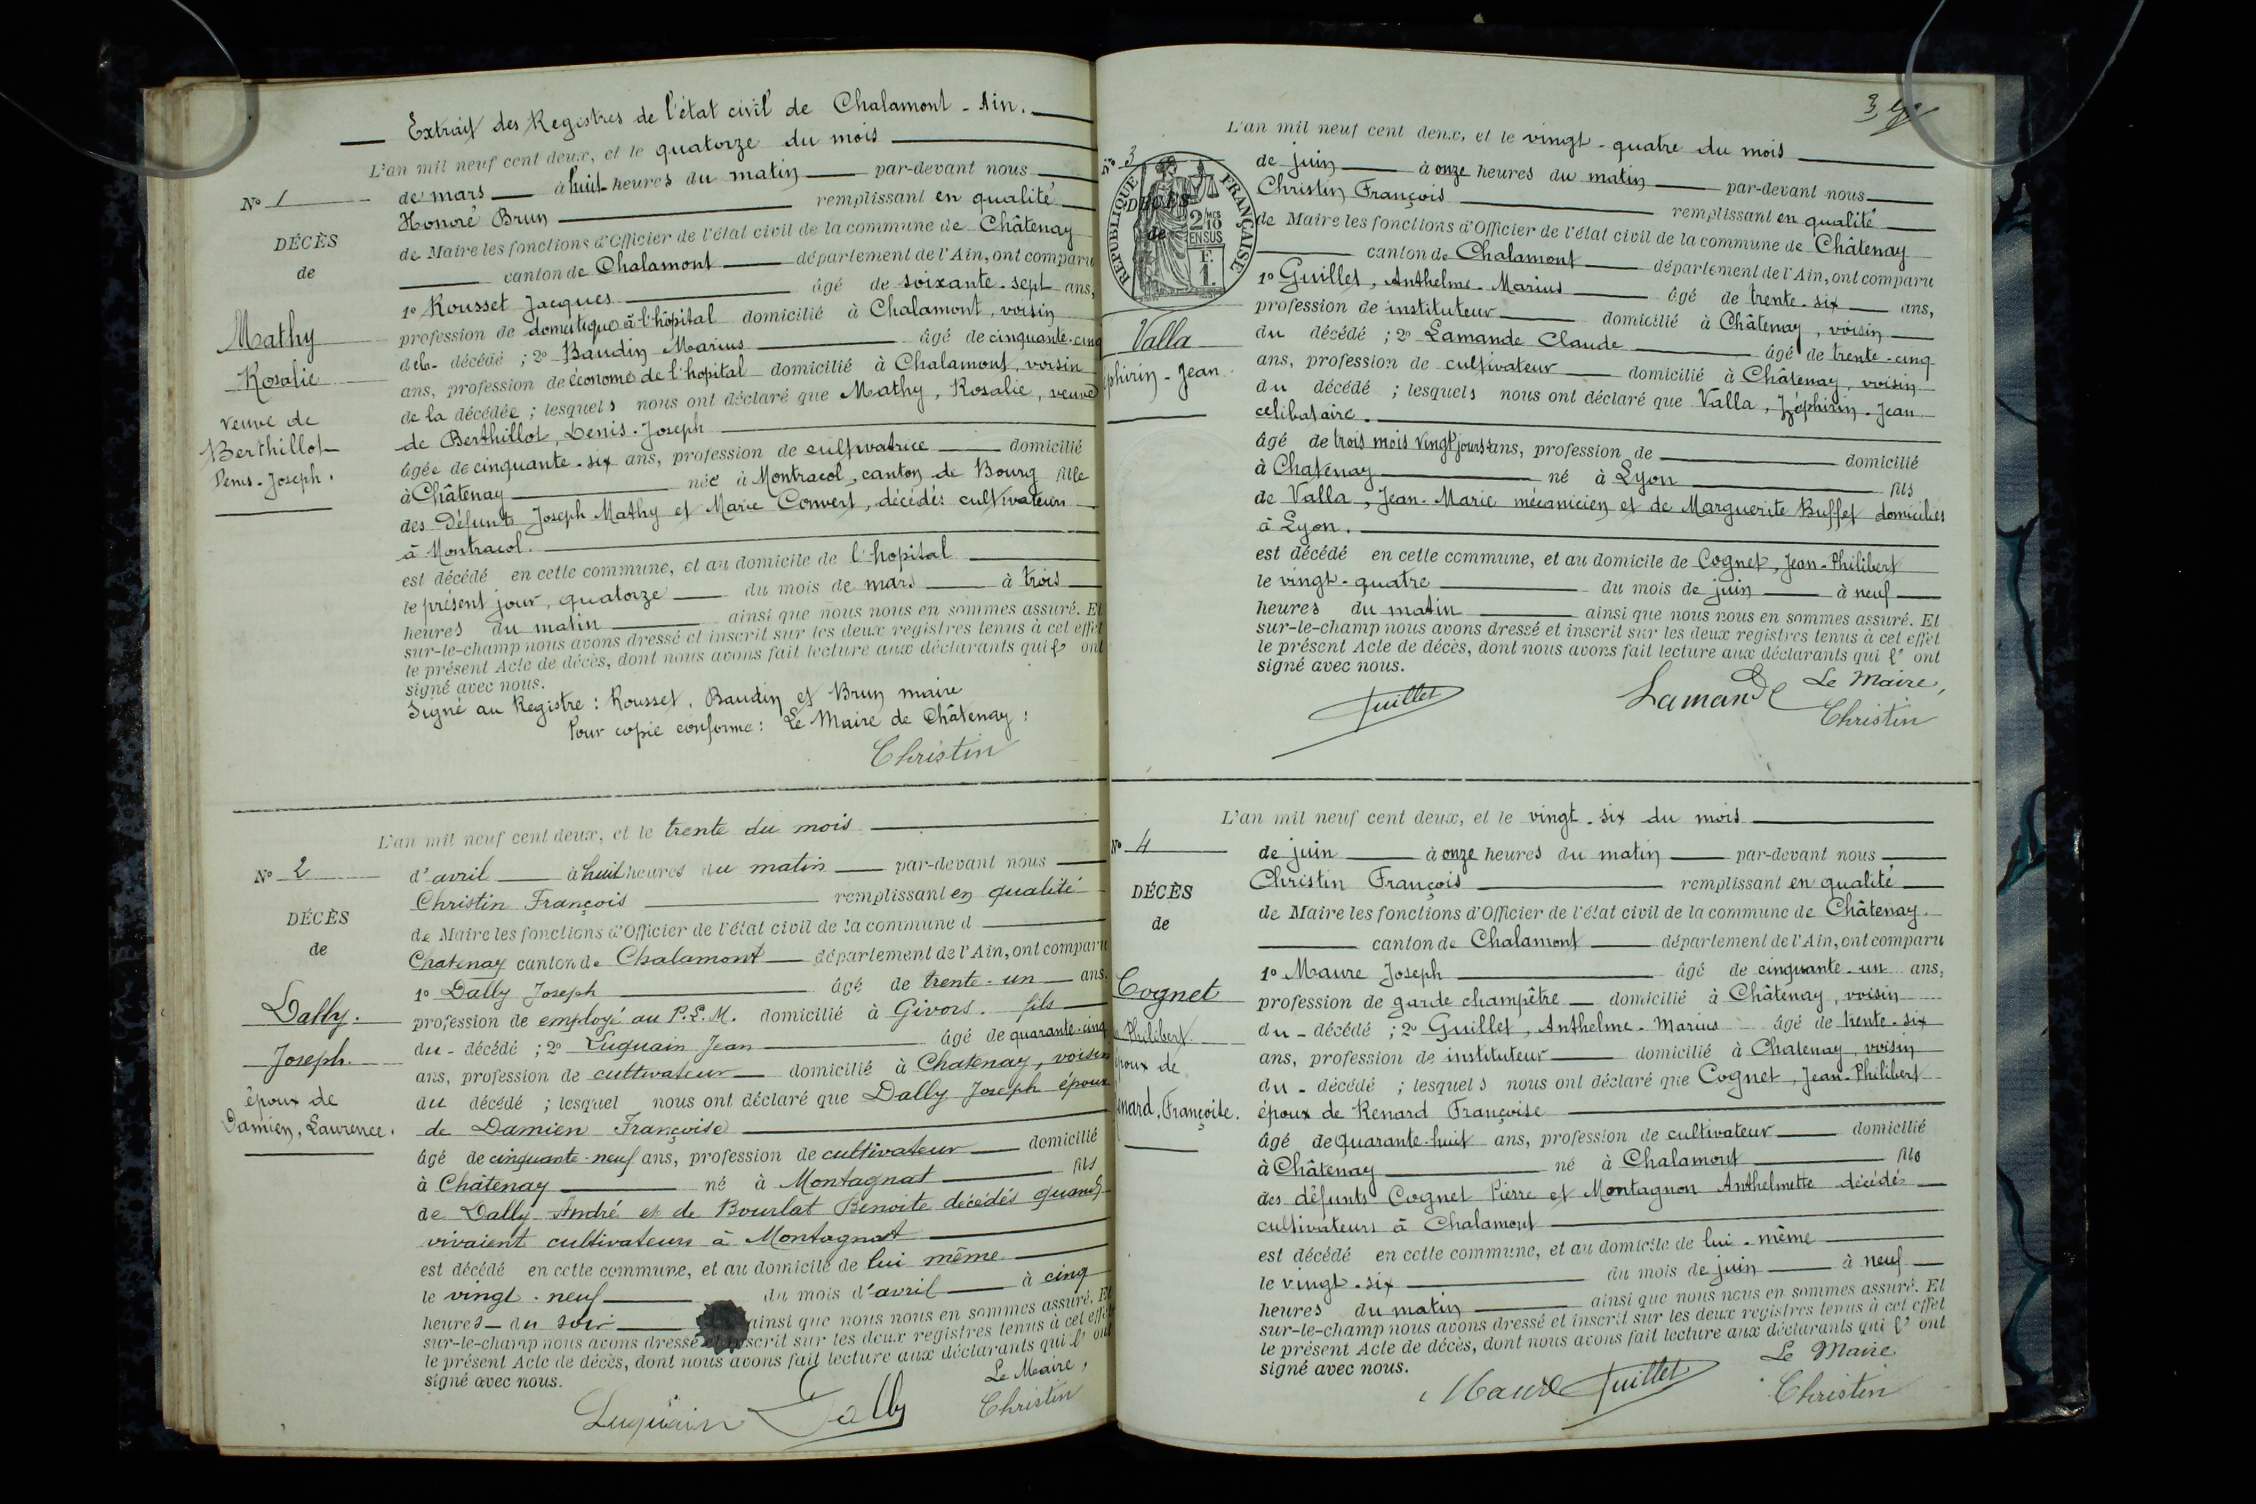 Extrait des Registres de l'état civil de Chalamont - Ain.
L'an mil neuf cent deux, et le quatorze du mois
No 1
de mars à huit heures du matin par-devant nous
Honoré Brun remplissant en qualité
DÉCÈS
de
Mathy
Rosalie
veuve de
Berthillot
Denis-Joseph.
de Maire les fonctions d'Officier de l'état civil de la commune de Châtenay
canton de Chalamont département de l'Ain, ont comparu
1o Rousset Jacques âgé de soixante-sept ans,
profession de domestique à l'hôpital domicilié à Chalamont, voisin
de la décédé ; 2o Baudin Marius âgé de cinquante-cinq
ans, profession de économe de l'hopital domicilié à Chalamont, voisin
de la décédée ; lesquels nous ont déclaré que Mathy, Rosalie, veuve
de Berthillot, Denis-Joseph
âgée de cinquante-six ans, profession de cultivatrice domicilié
à Châtenay née à Montracol, canton de Bourg fille
des Défunts Joseph Mathy et Marie Convert, décédés cultivateurs
à Montracol.
est décédé en cette commune, et au domicile de l'hopital
le présent jour, quatorze du mois de mars à trois
heures du matin ainsi que nous nous en sommes assuré. Et
sur-le-champ nous avons dressé et inscrit sur les deux registres tenus à cet effet
le présent Acte de décès, dont nous avons fait lecture aux déclarants qui l' ont
signé avec nous.
Signé au Registre : Rousset, Baudin et Brun maire
Pour copie conforme : Le Maire de Châtenay :
Christin
L'an mil neuf cent deux, et le trente du mois
No 2
d'avril à huit heures du matin par-devant nous
Christin François remplissant en qualité
DÉCÈS
de
Dally.
Joseph.
époux de
Damien, Laurence.
de Maire les fonctions d'Officier de l'état civil de la commune d
Chatenay canton de Chalamont département de l'Ain, ont comparu
1o Dally Joseph âgé de trente-un ans.
profession de employé au P.L.M. domicilié à Givors. fils
du décédé ; 2o Luquain Jean âgé de quarante-cinq
ans, profession de cultivateur domicilié à Chatenay, voisin
du décédé ; lesquel nous ont déclaré que Dally Joseph époux
de Damien Françoise
âgé de cinquante-neuf ans, profession de cultivateur domicilié
à Châtenay né à Montagnat fils
de Dally André et de Bourlat Benoite décédés quand
vivaient cultivateurs à Montagnat
est décédé en cette commune, et au domicile de lui même
le vingt-neuf du mois d'avril à cinq
heures du soir ainsi que nous nous en sommes assuré. Et
sur-le-champ nous avons dressé et inscrit sur les deux registres tenus à cet effet
le présent Acte de décès, dont nous avons fait lecture aux déclarants qui l' ont
signé avec nous.
Le Maire,
Luquain Dally Christin
L'an mil neuf cent deux, et le vingt-quatre du mois
No 3
RÉPUBLIQUE FRANÇAISE
2/10 EN SUS
F. 1.
DÉCÈS
de
Valla
phirin-Jean
de juin à onze heures du matin par-devant nous
Christin François remplissant en qualité
de Maire les fonctions d'Officier de l'état civil de la commune de Châtenay
canton de Chalamont département de l'Ain, ont comparu
1o Guillet, Anthelme-Marius âgé de trente-six ans,
profession de instituteur domicilié à Châtenay, voisin
du décédé ; 2o Lamande Claude âgé de trente-cinq
ans, profession de cultivateur domicilié à Châtenay, voisin
du décédé ; lesquels nous ont déclaré que Valla, Zéphirin-Jean
celibataire.
âgé de trois mois vingt jours ans, profession de domicilié
à Chatenay né à Lyon fils
de Valla, Jean-Marie mécanicien et de Marguerite Buffet domiciliés
à Lyon.
est décédé en cette commune, et au domicile de Cognet, Jean-Philibert
le vingt-quatre du mois de juin à neuf
heures du matin ainsi que nous nous en sommes assuré. Et
sur-le-champ nous avons dressé et inscrit sur les deux registres tenus à cet effet
le présent Acte de décès, dont nous avons fait lecture aux déclarants qui l' ont
signé avec nous.
Guillet Lamande Le Maire,
Christin
L'an mil neuf cent deux, et le vingt-six du mois
No 4
de juin à onze heures du matin par-devant nous
Christin François remplissant en qualité
DÉCÈS
de
Cognet
Philibert.
époux de
Renard, Françoise.
de Maire les fonctions d'Officier de l'état civil de la commune de Châtenay.
canton de Chalamont département de l'Ain, ont comparu
1o Maure Joseph âgé de cinquante-un ans,
profession de garde champêtre domicilié à Châtenay, voisin
du décédé ; 2o Guillet, Anthelme-Marius âgé de trente-six
ans, profession de instituteur domicilié à Chatenay, voisin
du décédé ; lesquels nous ont déclaré que Cognet, Jean-Philibert
époux de Renard Françoise
âgé de quarante-huit ans, profession de cultivateur domicilié
à Châtenay né à Chalamont fils
des défunts Cognet Pierre et Montagnon Anthelmette décédés
cultivateurs à Chalamont
est décédé en cette commune, et au domicile de lui-même
le vingt-six du mois de juin à neuf
heures du matin ainsi que nous nous en sommes assuré. Et
sur-le-champ nous avons dressé et inscrit sur les deux registres tenus à cet effet
le présent Acte de décès, dont nous avons fait lecture aux déclarants qui l' ont
signé avec nous.
Le Maire
Maure Guillet Christin